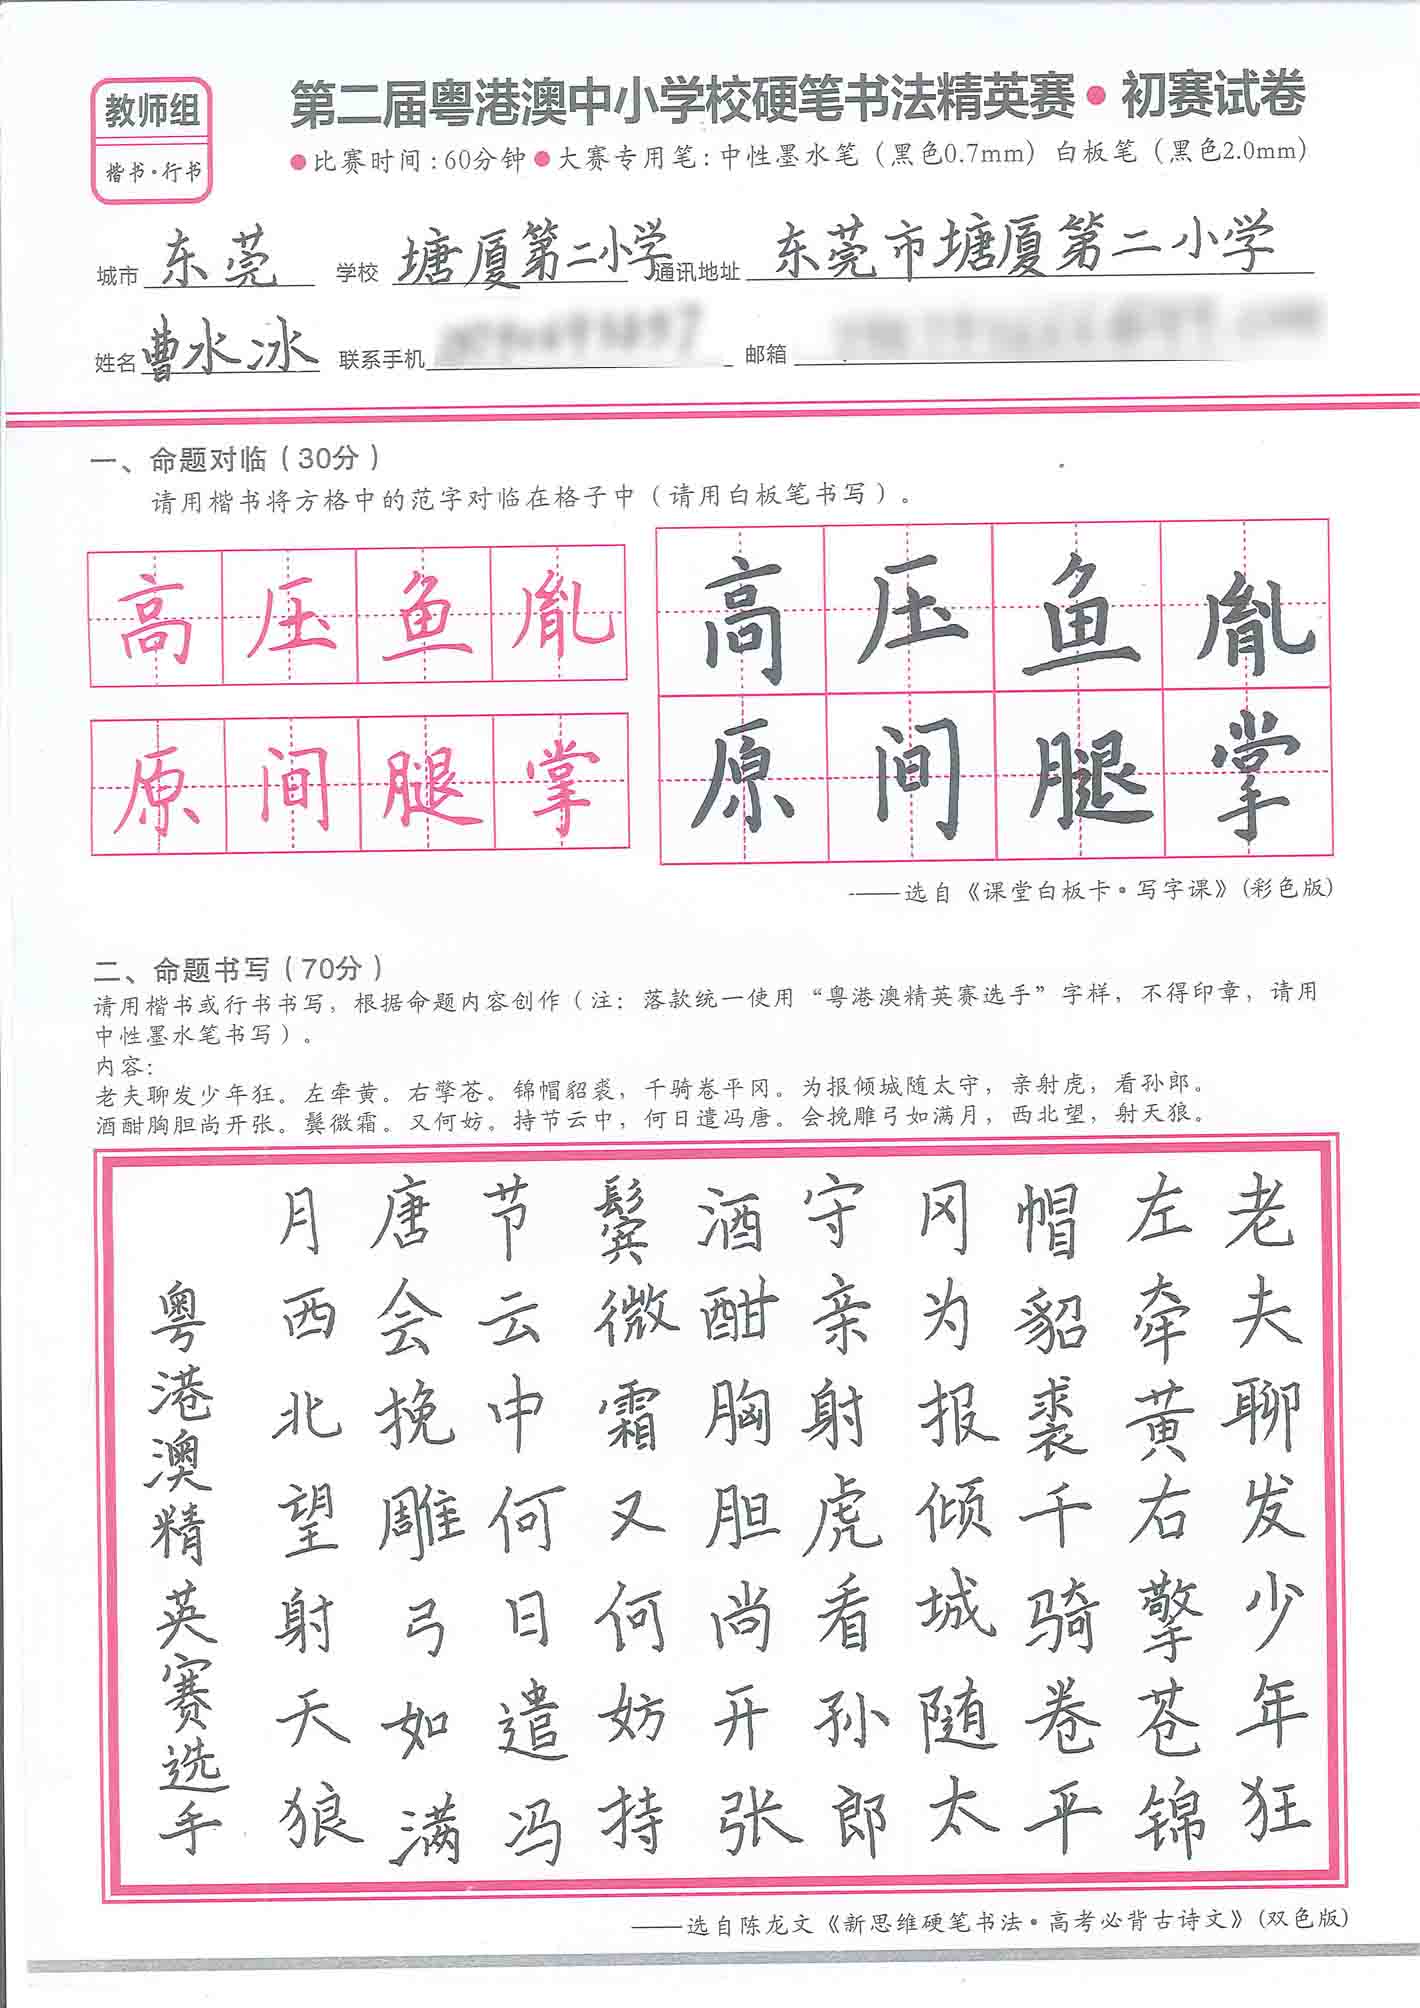 教师组
楷书·行书
第二届粤港澳中小学校硬笔书法精英赛·初赛试卷
●比赛时间:60分钟●大赛专用笔:中性墨水笔（黑色0.7mm）白板笔（黑色2.0mm）
城市 东莞 学校 塘厦第二小学 通讯地址 东莞市塘厦第二小学
姓名 曹水冰 联系手机 邮箱
一、命题对临（30分）
请用楷书将方格中的范字对临在格子中（请用白板笔书写）。
高压鱼胤
原间腿掌
高压鱼胤
原间腿掌
——选自《课堂白板卡·写字课》(彩色版)
二、命题书写（70分）
请用楷书或行书书写，根据命题内容创作（注：落款统一使用“粤港澳精英赛选手”字样，不得印章，请用
中性墨水笔书写）。
内容：
老夫聊发少年狂。左牵黄。右擎苍。锦帽貂裘，千骑卷平冈。为报倾城随太守，亲射虎，看孙郎。
酒酣胸胆尚开张。鬓微霜。又何妨。持节云中，何日遣冯唐。会挽雕弓如满月，西北望，射天狼。
老夫聊发少年狂
左牵黄右擎苍锦
帽貂裘千骑卷平
冈为报倾城随太
守亲射虎看孙郎
酒酣胸胆尚开张
鬓微霜又何妨持
节云中何日遣冯
唐会挽雕弓如满
月西北望射天狼
粤港澳精英赛选手
——选自陈龙文《新思维硬笔书法·高考必背古诗文》(双色版)